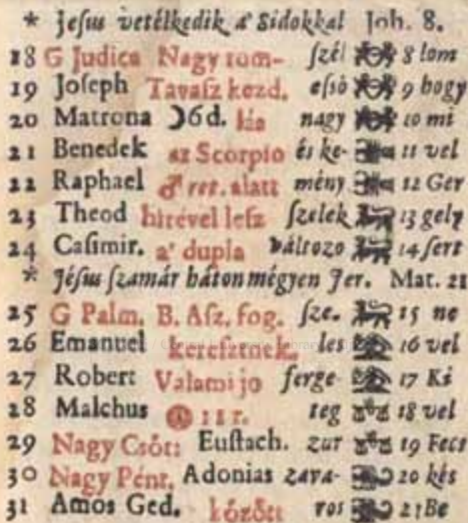 * Jeſus vetélkedik a' Sidokkal Joh. 8.
18 G Judica Nagy rom- ſzél 8 lom
19 Joſeph Tavaſz kezd. eſsò 9 hogy
20 Matrona ☽6d. nagy 10 mi
21 Benedek az Scorpio és ke- 11 vel
22 Raphael ♂ ret. alatt mény 12 Ger
23 Theod hirével leſz ſzelek 13 gely
24 Caſimir. a' dupla változo 14 ſert
* Jéſus ſzamár háton mégyen Jer. Mat. 21
25 G Palm. B. Aſz. fog. ſze. 15 ne
26 Emanuel keresztnek. les 16 vel
27 Robert Valami jo ferge- 17 Ki
28 Malchus 11 r. teg 18 vel
29 Nagy Csót: Euſtach. zur 19 Fecs
30 Nagy Pént. Adonias zava- 20 kés
31 Amos Ged. kózótt ros 21 Be